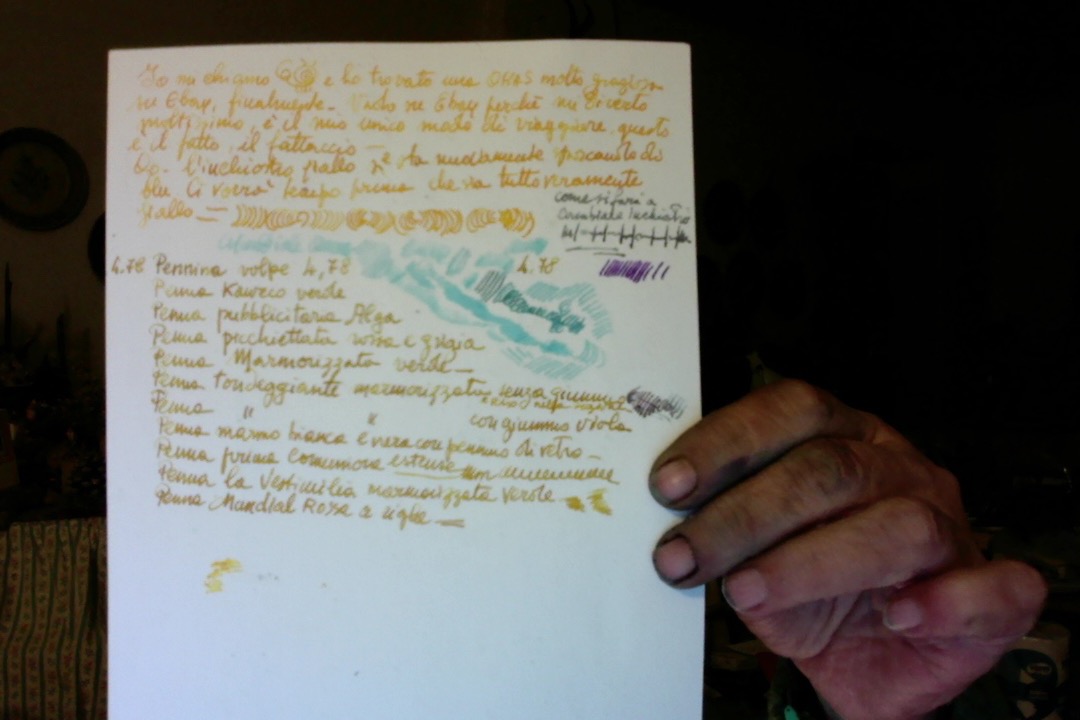 Io mi chiamo e ho trovato una OMAS molto graziosa
su Ebay, finalmente. Vado su Ebay perchè mi diverto
moltissimo, è il mio unico modo di viaggiare, questo
è il fatto, il fattaccio —
l'inchiostro giallo sta nuovamente di
blu. Ci vorrà tempo prima che sia tutto veramente
giallo —
come si fa a
cambiare inchiostro
4.78 Pennina volpe 4,78 4.78
Penna Kaweco verde
Penna pubblicitaria Alga
Penna picchiettata rossa e grigia
Penna Marmorizzata verde —
Penna Tondeggiante marmorizzata senza
Penna " " con viola
Penna marmo bianca e nera con pennino di vetro —
Penna prima comunione
Penna la Ventimilia marmorizzata verde
Penna Mundial Rossa a righe —